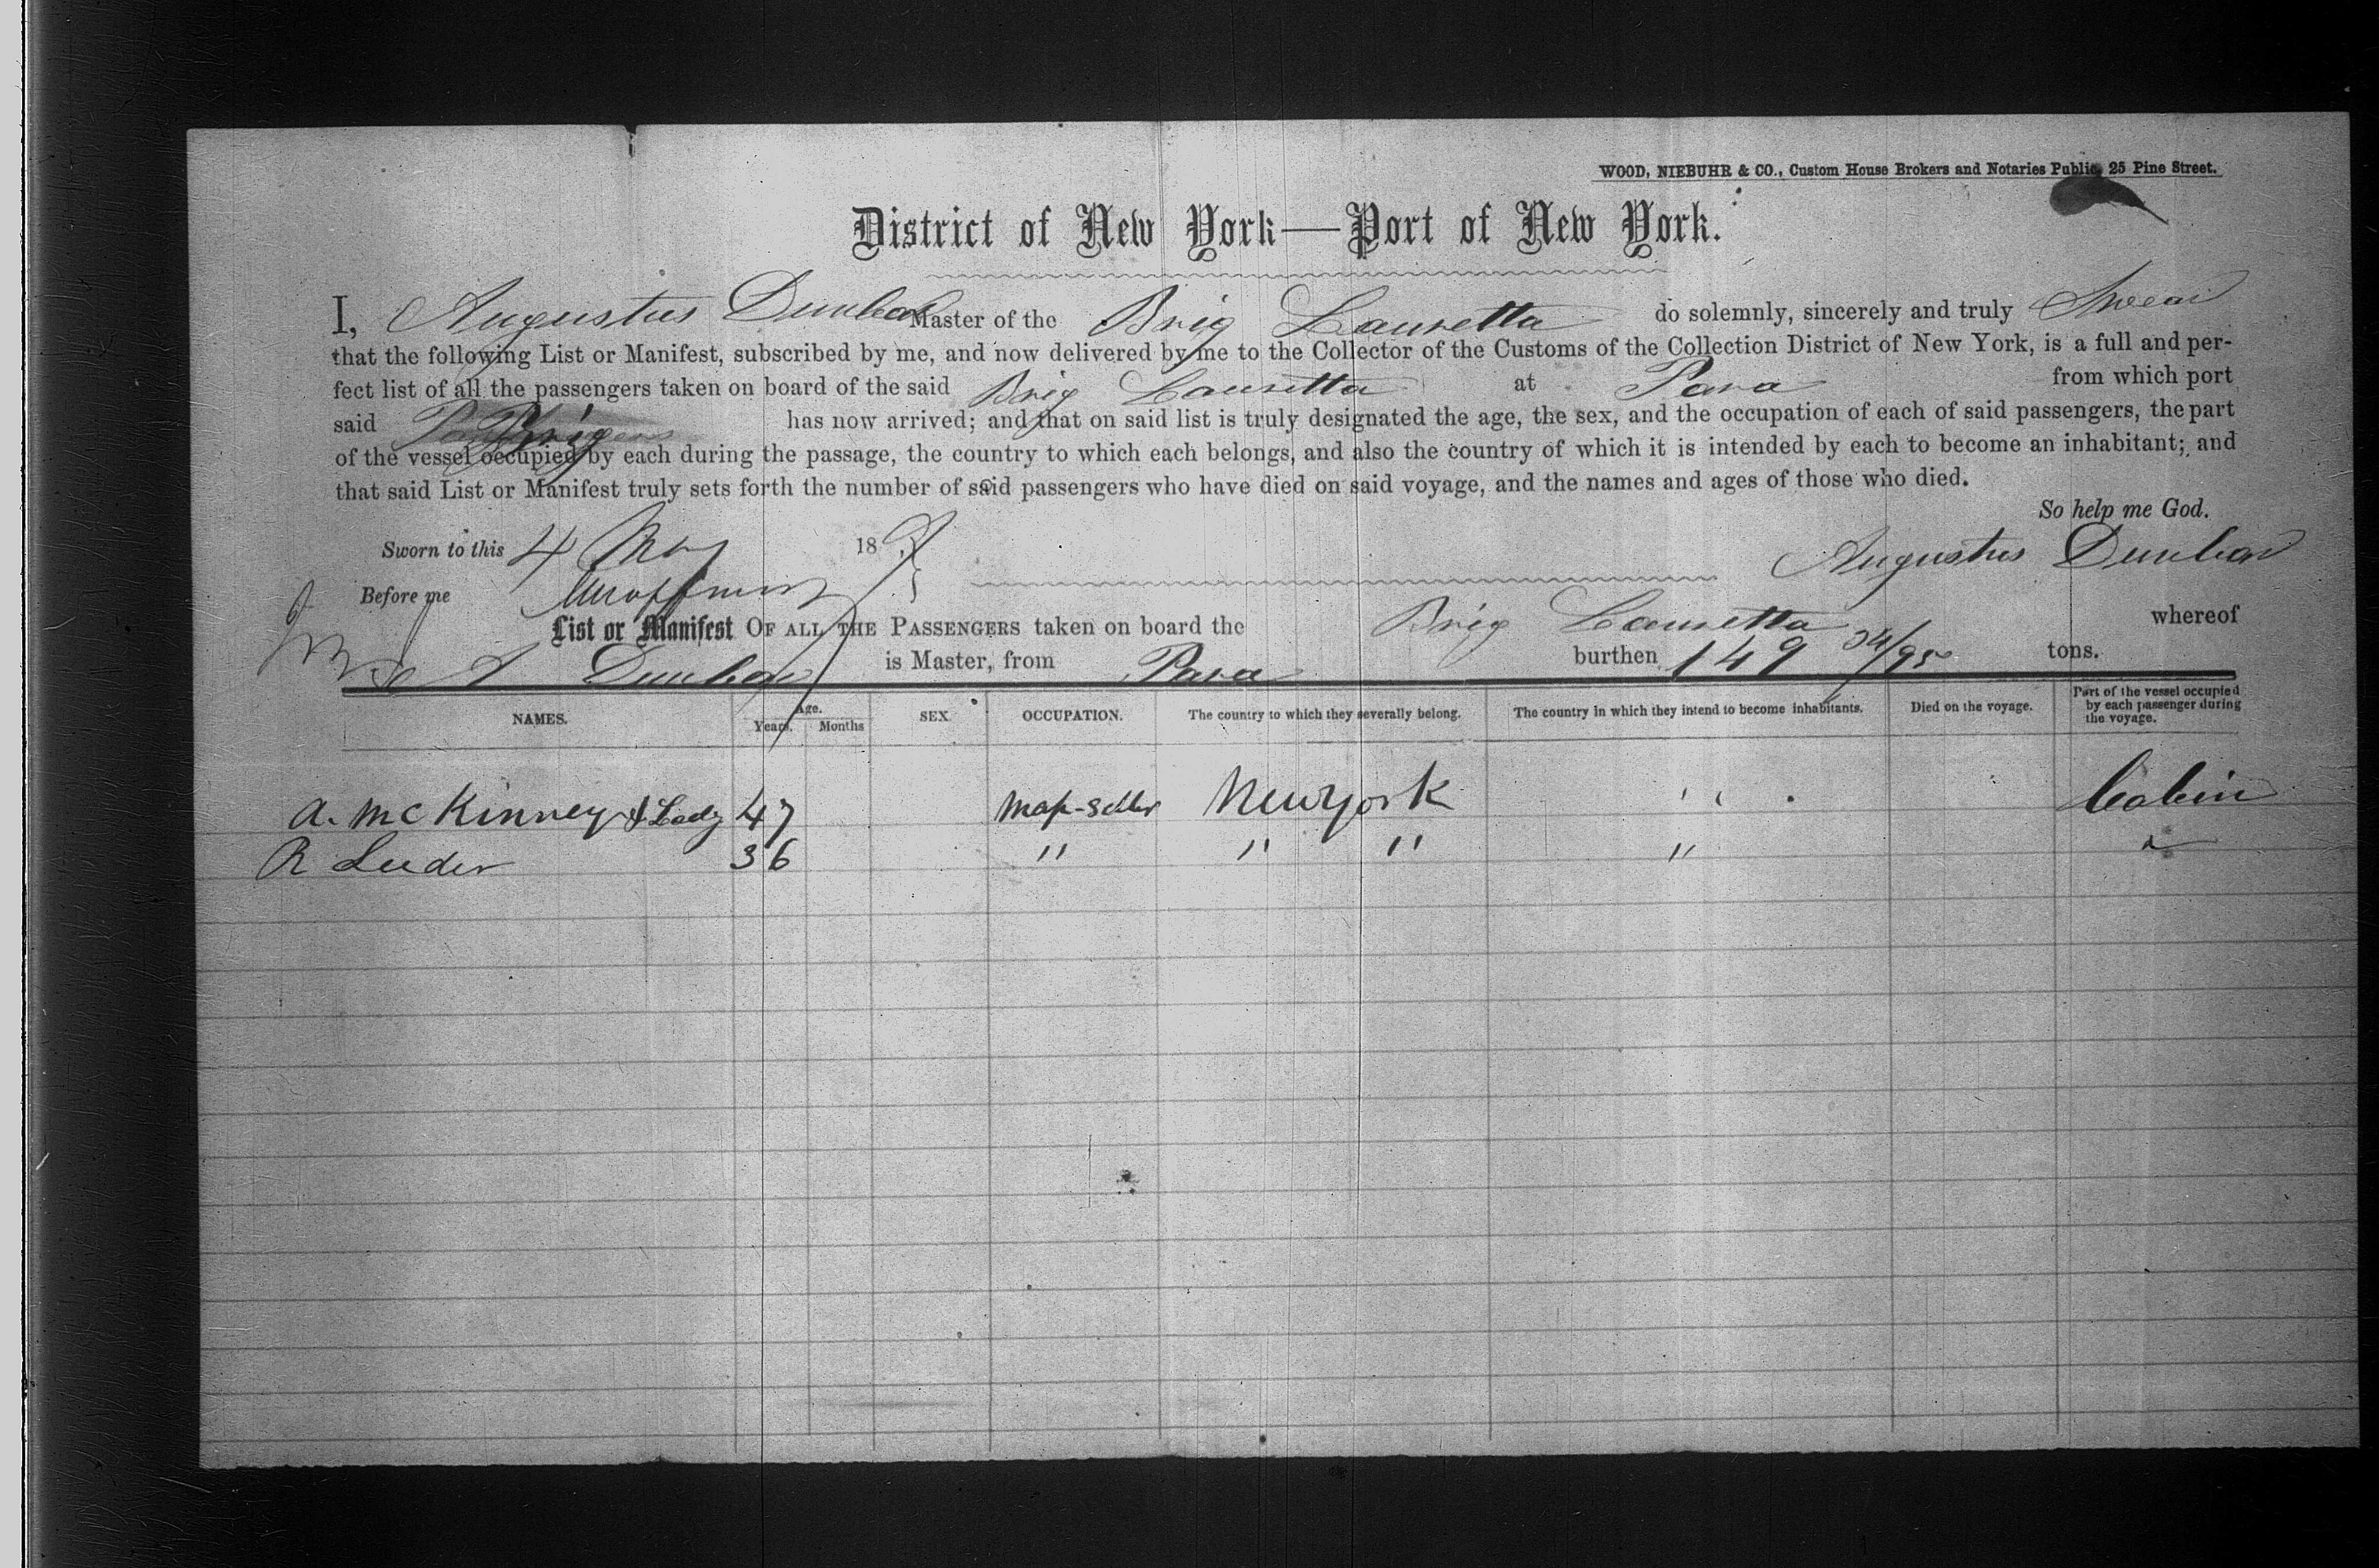 WOOD, NIEBUHR & CO., Custom House Brokers and Notaries Public, 25 Pine Street.
District of New York—Port of New York.
I, Augustus Dunbar Master of the Brig Lauretta do solemnly, sincerely and truly Swear
that the following List or Manifest, subscribed by me, and now delivered by me to the Collector of the Customs of the Collection District of New York, is a full and per-
fect list of all the passengers taken on board of the said Brig Lauretta at Para from which port
said Brig has now arrived; and that on said list is truly designated the age, the sex, and the occupation of each of said passengers, the part
of the vessel occupied by each during the passage, the country to which each belongs, and also the country of which it is intended by each to become an inhabitant; and
that said List or Manifest truly sets forth the number of said passengers who have died on said voyage, and the names and ages of those who died.
So help me God.
Sworn to this 4 May 18 Augustus Dunbar
Before me
List or Manifest OF ALL THE PASSENGERS taken on board the Brig Lauretta whereof
A Dunbar is Master, from Para burthen 149 /95 tons.
NAMES. Age. Years. Months SEX. OCCUPATION. The country to which they severally belong. The country in which they intend to become inhabitants. Died on the voyage. Part of the vessel occupied by each passenger during the voyage.
A. McKinney & Lady 47 Map-seller New York " Cabin
R Luder 36 " " " "